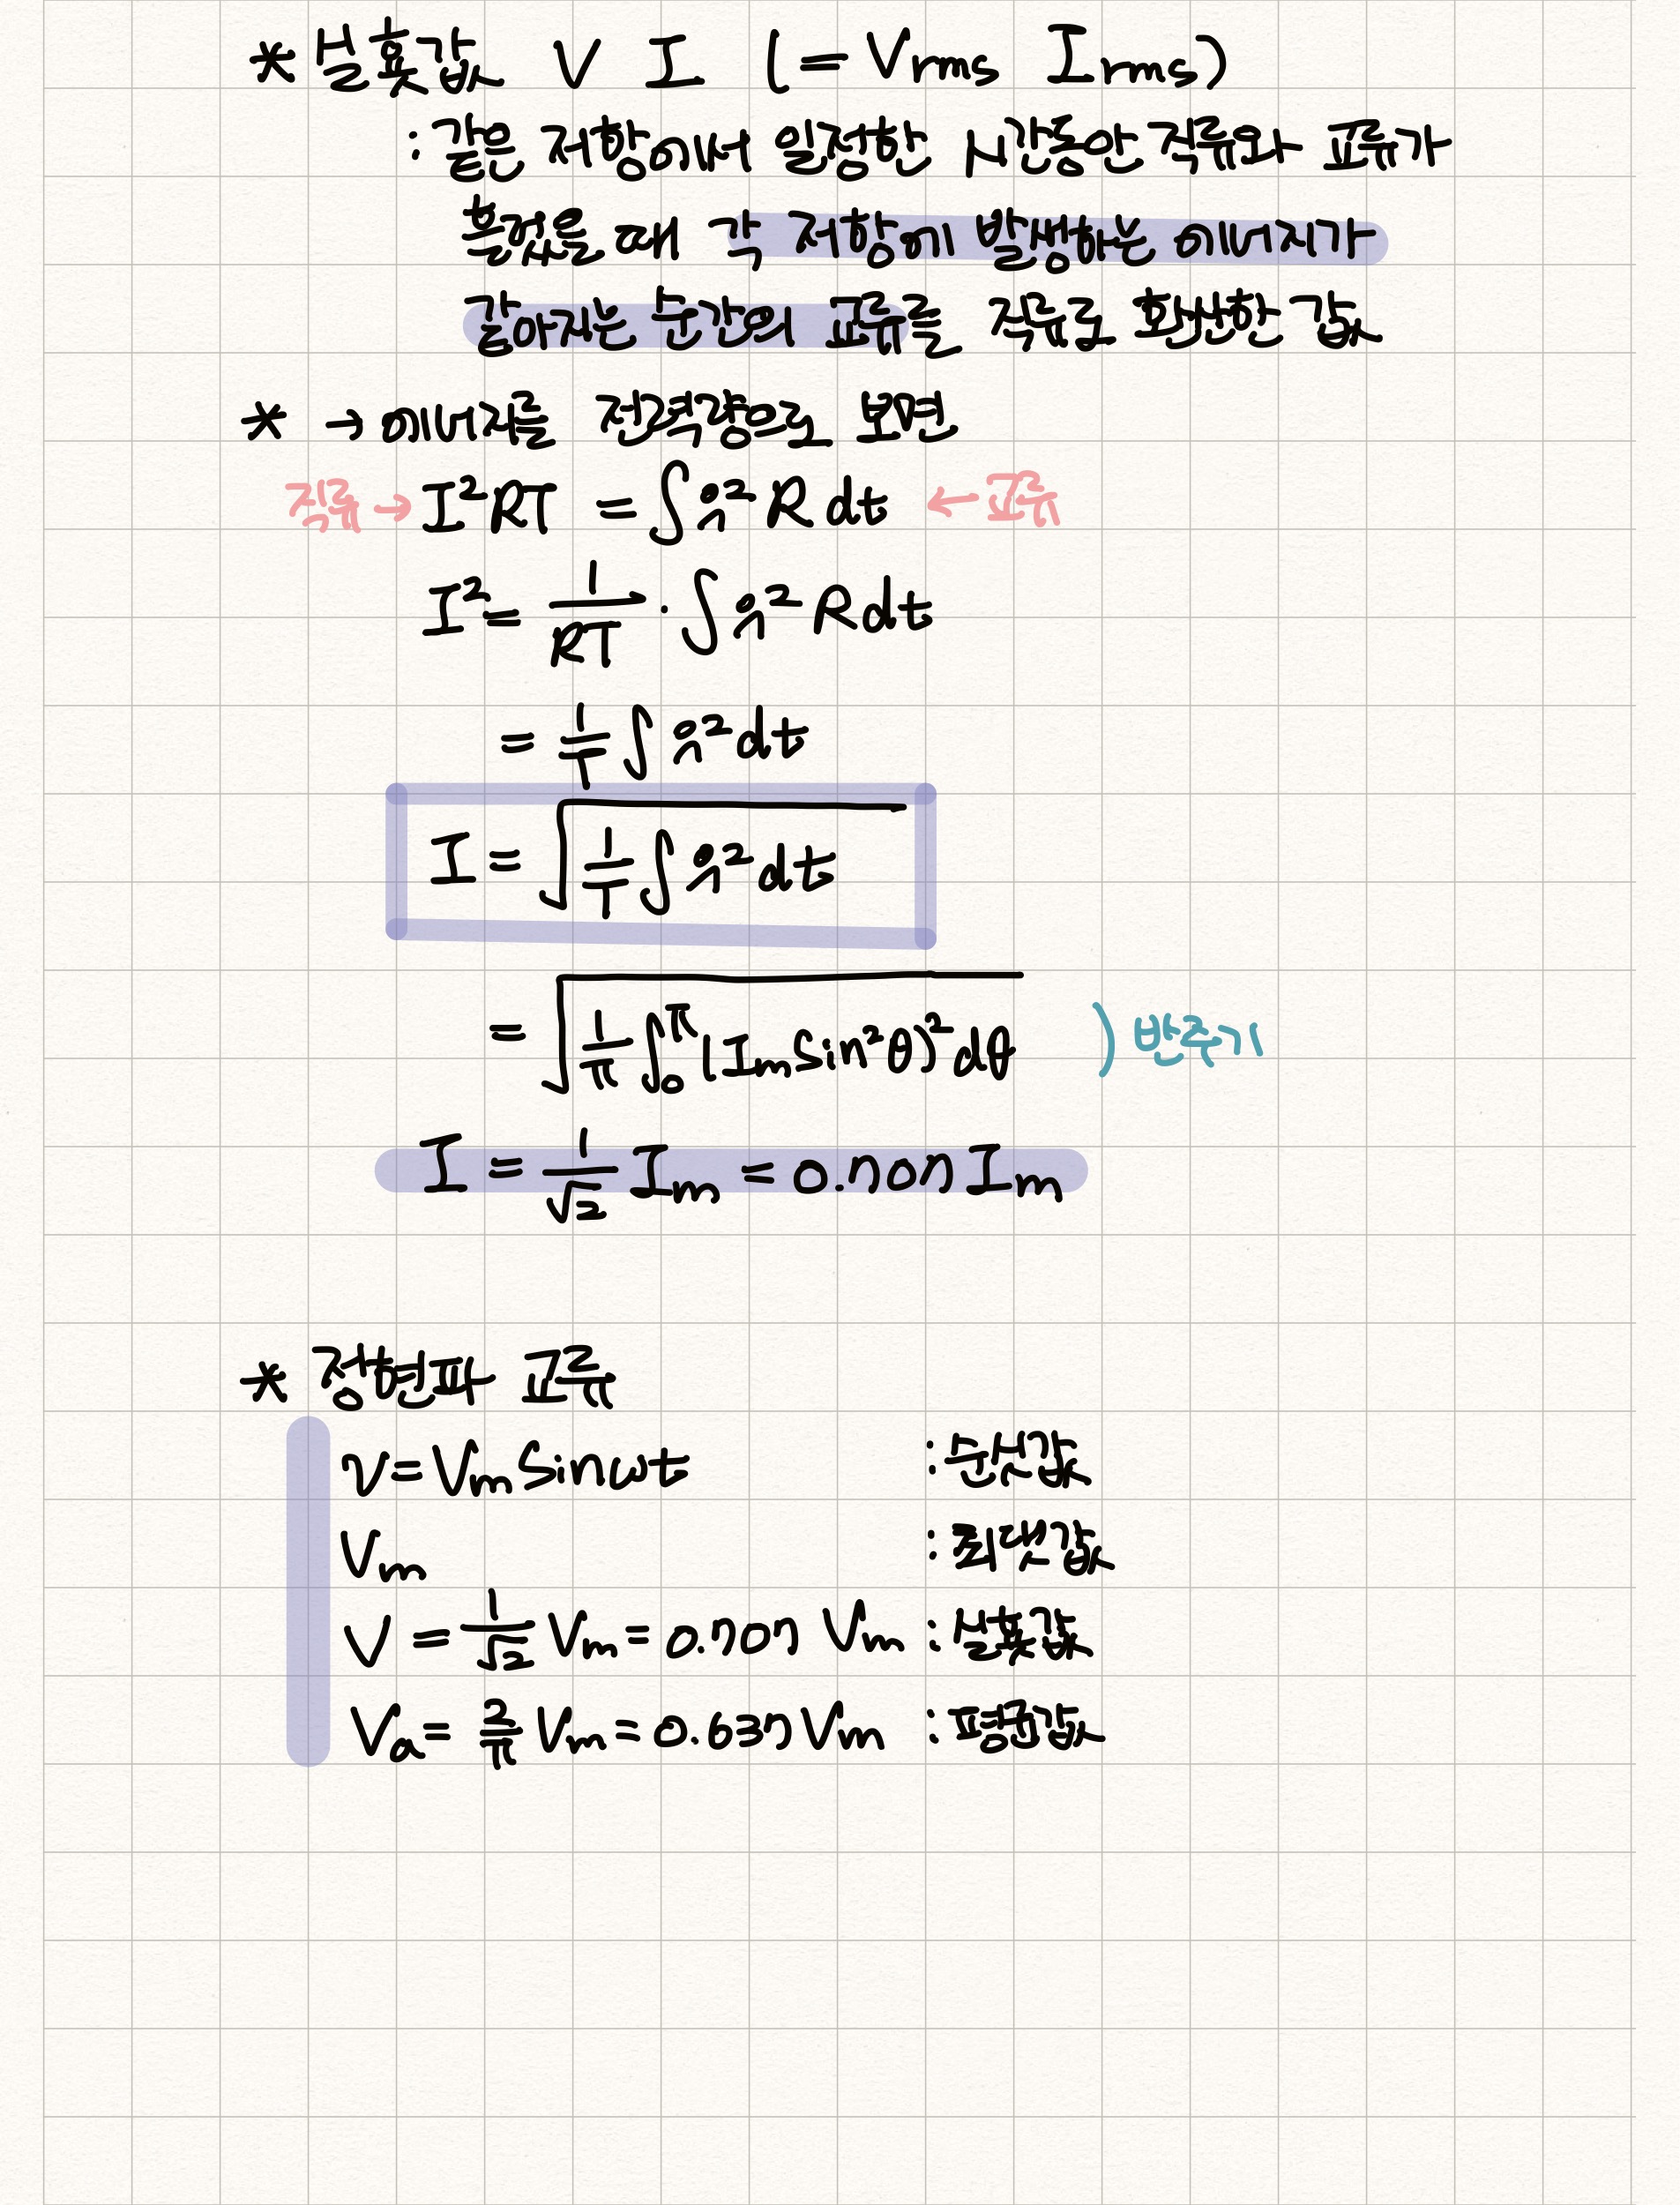 * 실횻값 V I (= Vrms Irms)
: 같은 저항에서 일정한 시간동안 직류와 교류가
흘렀을 때 각 저항에 발생하는 에너지가
같아지는 순간의 교류를 직류로 환산한 값
* → 에너지를 전력량으로 보면
직류 → I²RT = ∫i²R dt ← 교류
I² = 1/RT · ∫i²R dt
= 1/T ∫i²dt
I = √(1/T ∫i²dt)
= √(1/π ∫₀^π (Im Sin²θ)² dθ) ) 반주기
I = 1/√2 Im = 0.707 Im
* 정현파 교류
v = Vm Sinωt : 순싯값
Vm : 최댓값
V = 1/√2 Vm = 0.707 Vm : 실횻값
Va = 2/π Vm = 0.637 Vm : 평균값